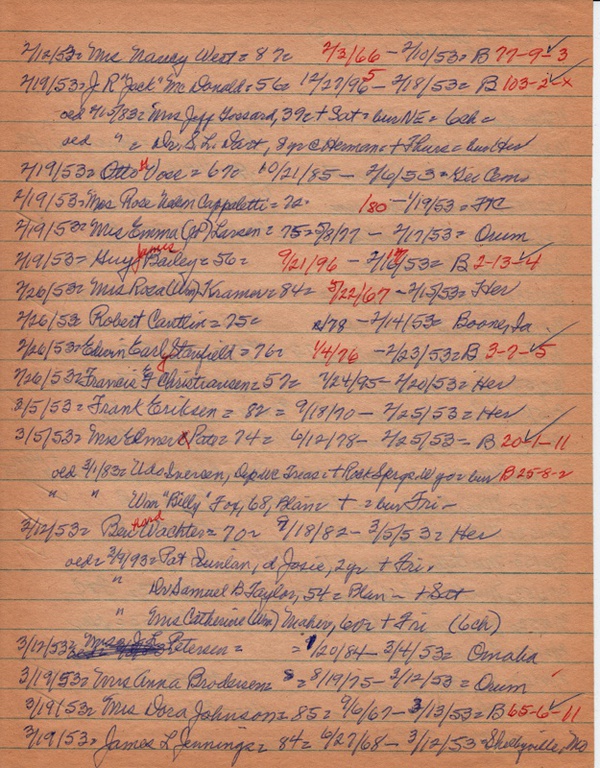 2/12/53= Mrs Nancy West = 87= 2/3/66 - 2/10/53= B 77-9-3
2/19/53= J R "Jack" Mc Donald = 56= 12/27/96 5 - 2/18/53= B 103-2-x
oed 2/15/83= Mrs Jeff Gossard, 39= + Sat = bur NE = 6ch =
oed " = Dr. S. L. , 8yr c Herman = + Thurs = bur Her
2/19/53= Otto H Vose = 67= 10/21/85 - 2/6/53= Ger Cem
2/19/53= Mrs Rose Cappaletti = 72= 180 - 1/19/53= FtC
2/19/53= Mrs Emma (JP) Larsen = 75= 5/8/77 - 2/17/53= Orum
2/19/53= Guy James Bailey = 56= 9/21/96 - 2/ /53= B 2-13-4
2/26/53= Mrs Roza (Wm) Kramer = 84= 5/22/67 - 2/15/53= Her
2/26/53= Robert Cantlin = 75= /78 - 2/14/53= Boone, Ia.
2/26/53= Edwin Early Stanfield = 76= 1/4/76 - 2/23/53= B 3-7-5
2/26/53= Francis E Christiansen = 57= 7/24/95 - 2/20/53= Her
3/5/53= Frank Eriksen = 82= 9/18/70 - 2/25/53= Her
3/5/53= Mrs Elmer Pate = 74= 6/12/78 - 2/25/53= B 20-1-11
oed 3/1/83= Uds Iversen, Dep WC Treas = + Rock Spergs Wyo = bur B 25-8-2
" " Wm "Billy" Fox, 68, Blan + = bur Fri -
3/12/53= Bernhard Wachter = 70= 9/18/82 - 3/5/53= Her
oed = 3/9/93= Pat Dunlan, d Josie, 2yr + Fri.
" Dr Samuel B Taylor, 54 = Blan - + Sat
" Mrs Catherine (Wm) Maher, 60r + Fri (6ch)
3/12/53= Petersen = = 1/20/84 - 3/4/53= Omaha
3/19/53= Mrs Anna Brodersen = 8/19/75 - 3/12/53= Orum
3/19/53= Mrs Dora Johnson = 85= 9/6/67 - 3/13/53= B 65-6-11
3/19/53= James L Jennings = 84= 6/27/68 - 3/12/53= Shelbyville, Mo